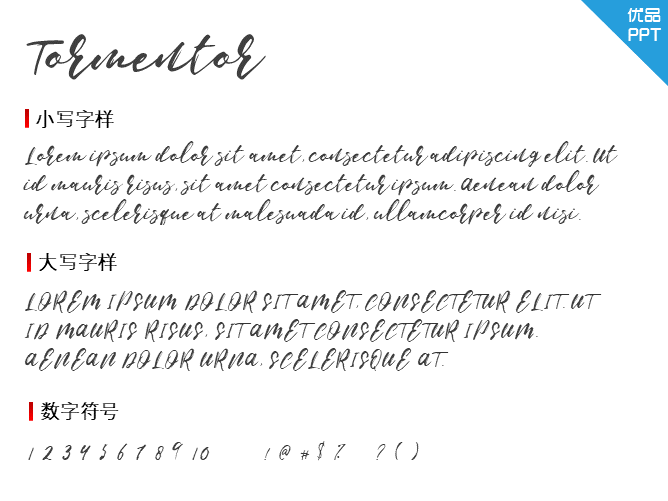 优品
PPT
Tormentor
小写字样
Lorem ipsum dolor sit amet, consectetur adipiscing elit. Ut
id mauris risus, sit amet consectetur ipsum. Aenean dolor
urna, scelerisque at malesuada id, ullamcorper id nisi.
大写字样
LOREM IPSUM DOLOR SIT AMET, CONSECTETUR ELIT. UT
ID MAURIS RISUS, SIT AMET CONSECTETUR IPSUM.
AENEAN DOLOR URNA, SCELERISQUE AT.
数字符号
1 2 3 4 5 6 7 8 9 10 ! @ # $ % ? ( )